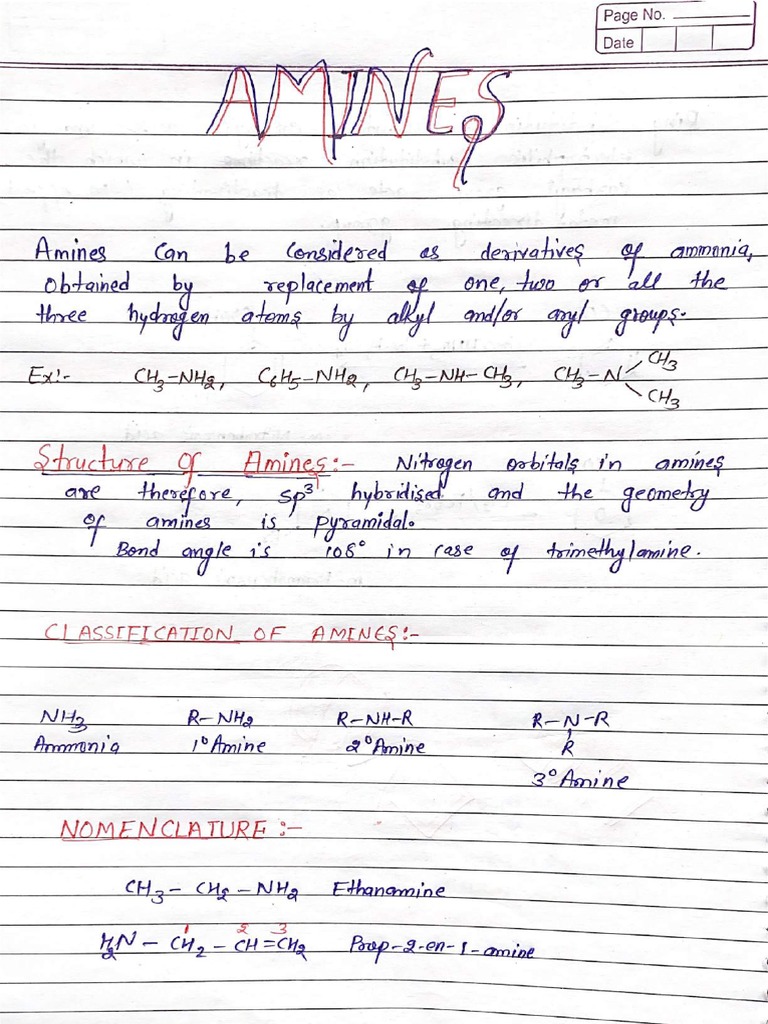 Page No.
Date
AMINES
Amines can be considered as derivatives of ammonia,
obtained by replacement of one, two or all the
three hydrogen atoms by alkyl and/or aryl groups.
Ex:- CH3-NH2, C6H5-NH2, CH3-NH-CH3, CH3-N
CH3
CH3
Structure Of Amines:- Nitrogen orbitals in amines
are therefore, sp3 hybridised and the geometry
of amines is pyramidal.
Bond angle is 108° in case of trimethylamine.
CLASSIFICATION OF AMINES:-
NH3 R-NH2 R-NH-R R-N-R
Ammonia 1° Amine 2° Amine R
3° Amine
NOMENCLATURE :-
CH3- CH2-NH2 Ethanamine
1 2 3
H2N - CH2 - CH=CH2 Prop-2-en-1-amine